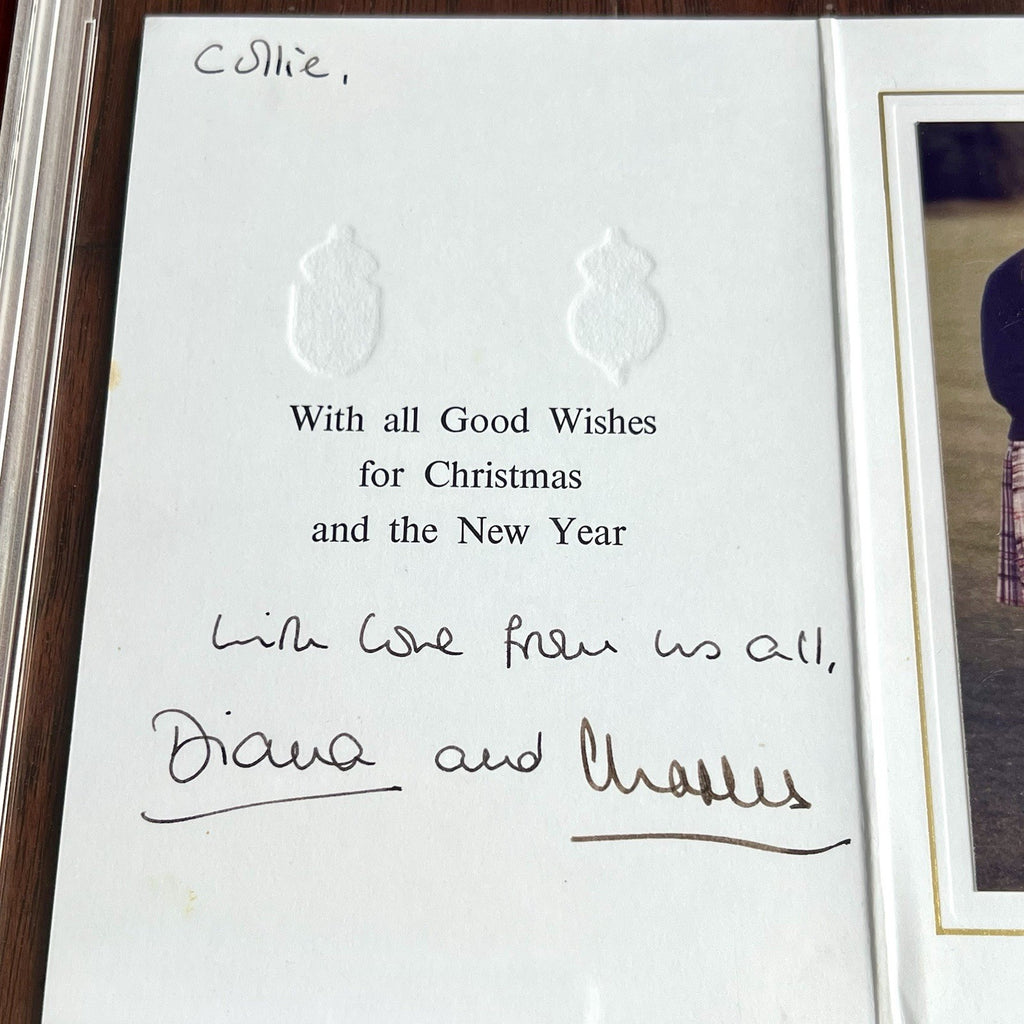 Collie,
With all Good Wishes
for Christmas
and the New Year
with love from us all,
Diana and Charles